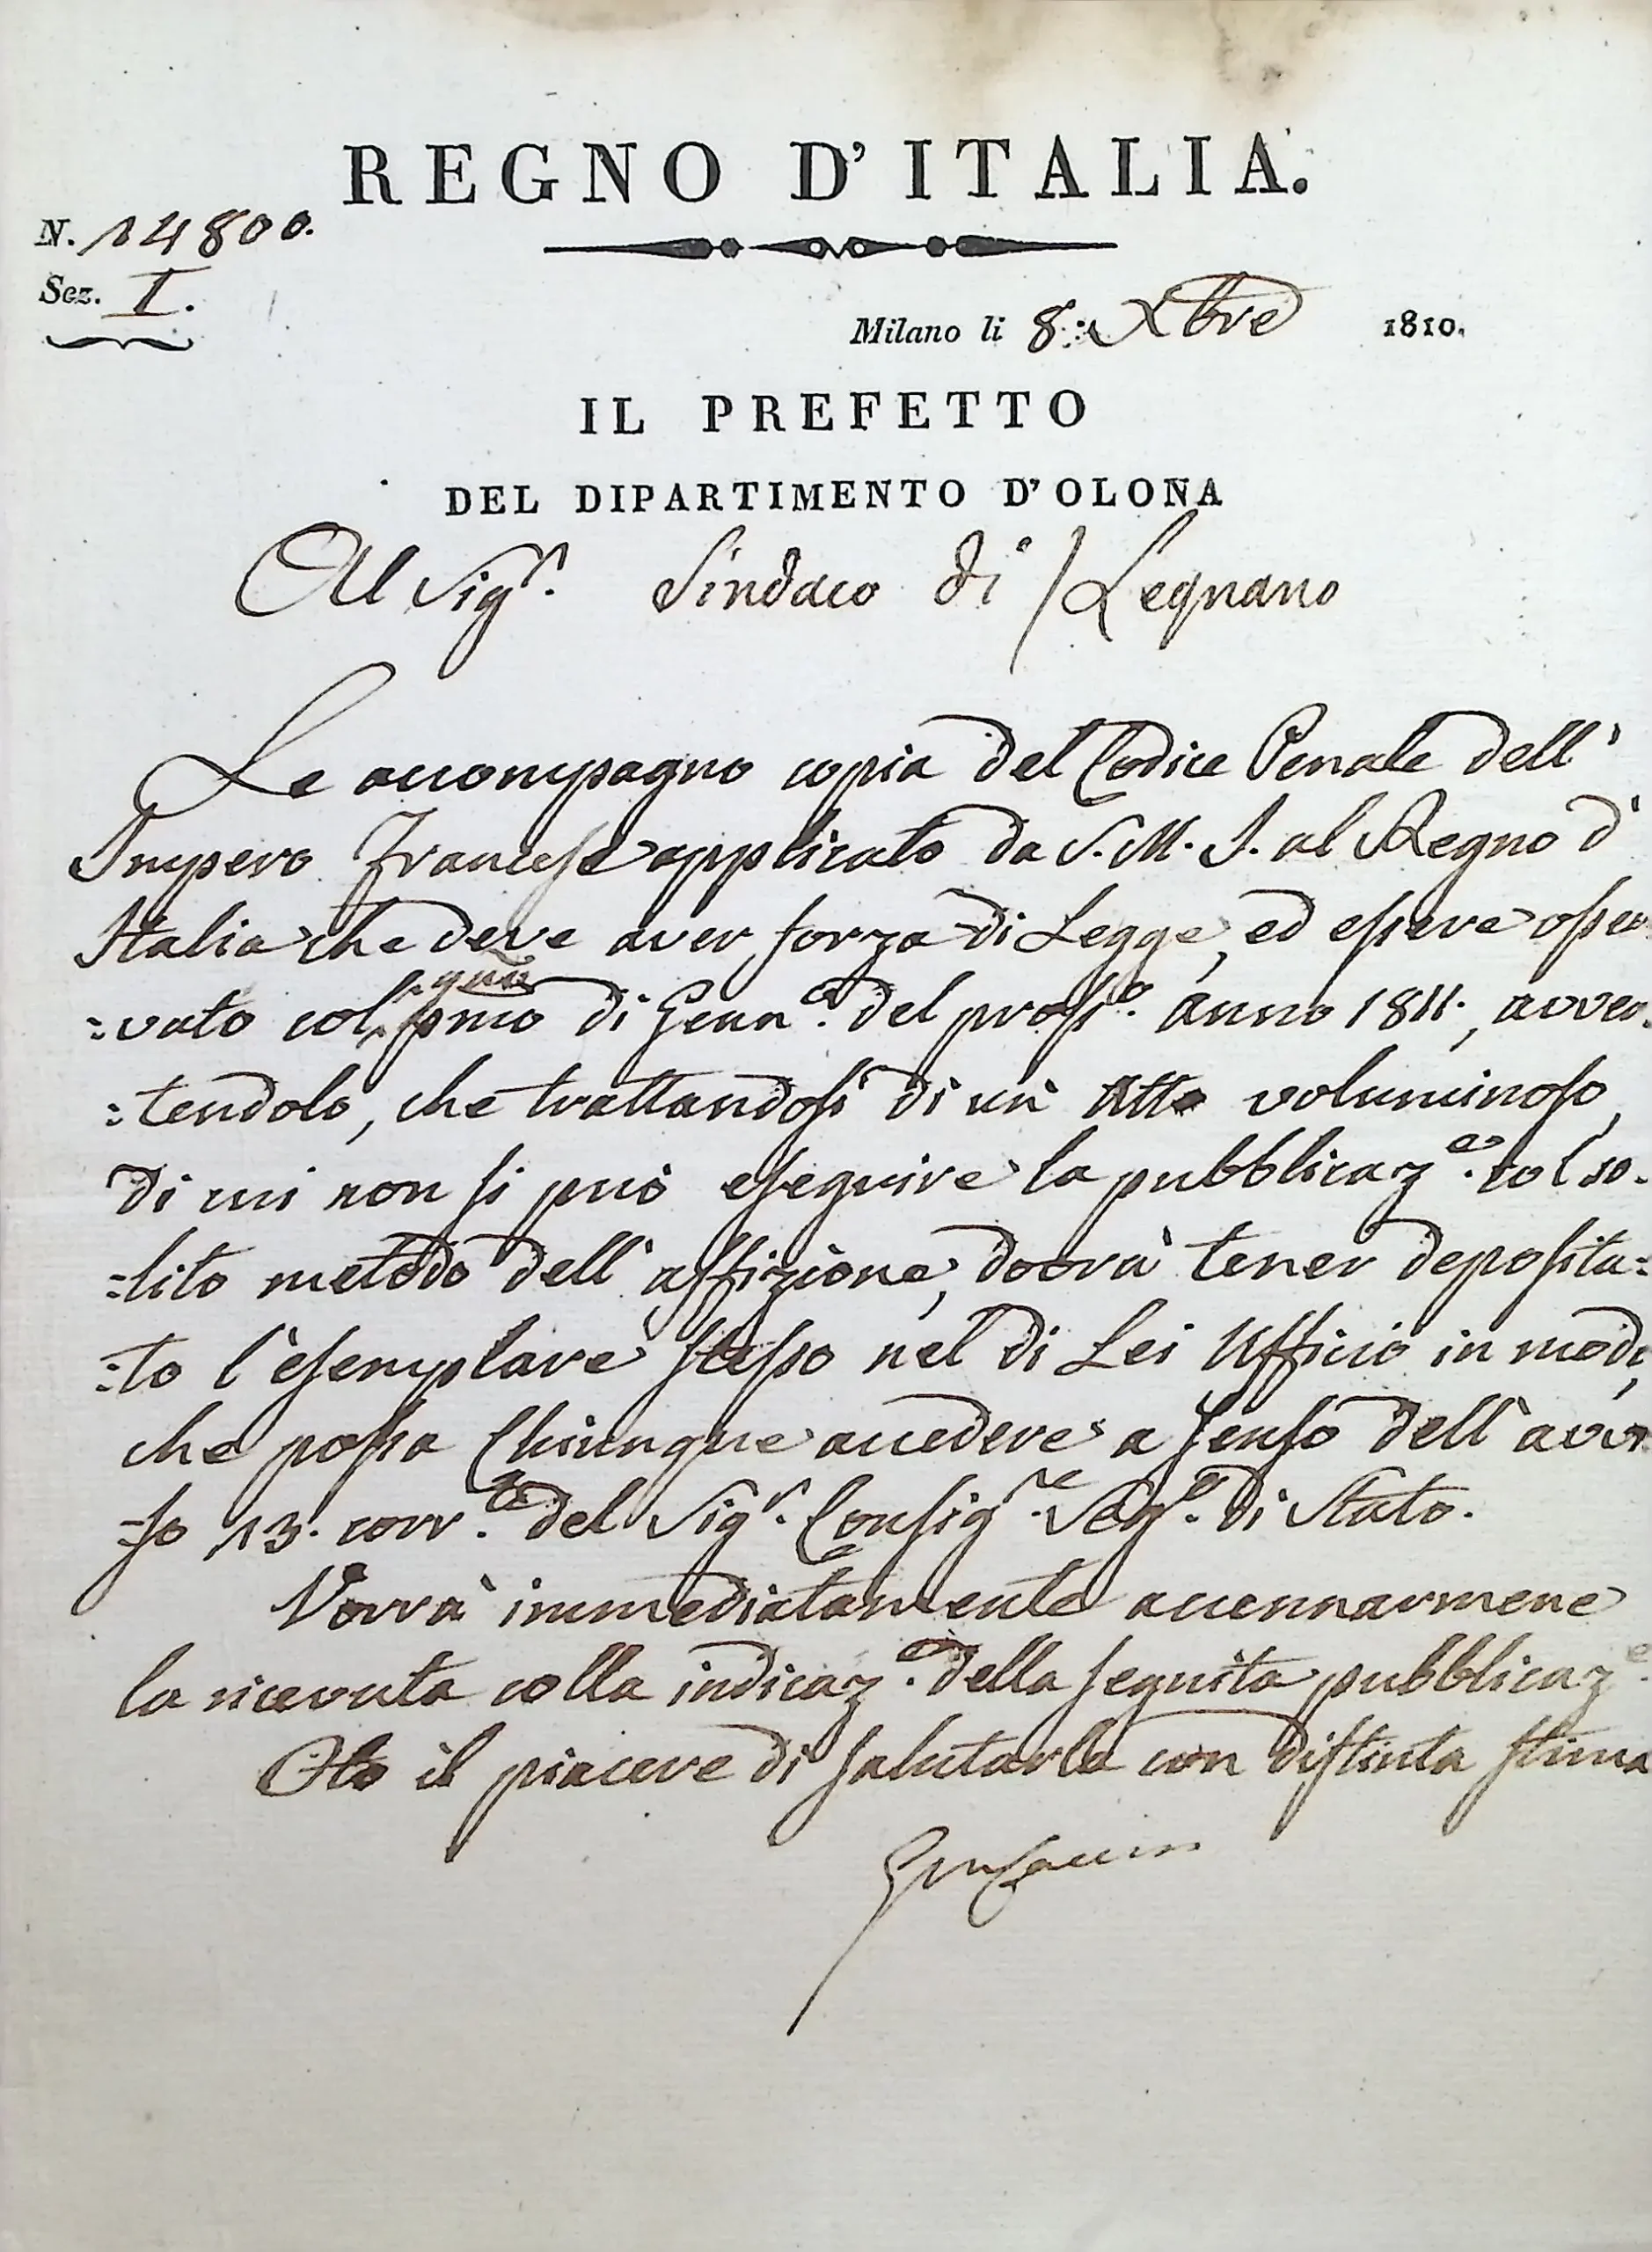 REGNO D'ITALIA.
N. 14800.
Sez. I.
Milano li 8: Xbre 1810.
IL PREFETTO
DEL DIPARTIMENTO D'OLONA
Al Sig.r Sindaco di Legnano
Le accompagno copia del Codice Penale dell'
Impero Francese applicato da S. M. I. al Regno d'
Italia che deve aver forza di Legge, ed essere osser
:vato col p.mo di Genn.o del pross.o anno 1811., avver:
:tendolo, che trattandosi di un' Atto voluminoso,
di cui non si può eseguire la pubblicaz.e col so:
:lito metodo dell' affizione, dovrà tener deposita:
:to l'esemplare stesso nel di Lei Ufficio in modo,
che possa Chiunque accedere a senso dell' avvi
:so 13. corr.te del Sig.r Consig.re Seg.o di Stato.
Vorrà immediatamente accennarmene
la ricevuta colla indicaz.e della seguita pubblicaz.e
Ho il piacere di salutarla con distinta stima